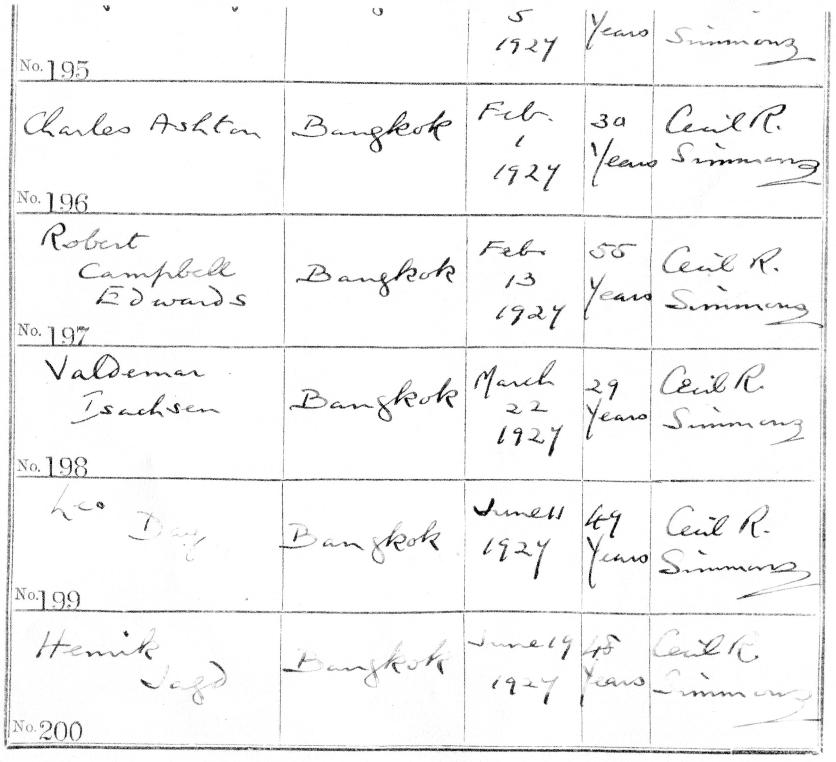 5
1927
Years
Simmons
No. 195
Charles Ashton
Bangkok
Feb.
1
1927
30
Years
Cecil R.
Simmons
No. 196
Robert
Campbell
Edwards
Bangkok
Feb.
13
1927
55
Years
Cecil R.
Simmons
No. 197
Valdemar
Isachsen
Bangkok
March
22
1927
29
Years
Cecil R.
Simmons
No. 198
Leo
Day
Bangkok
June 11
1927
49
Years
Cecil R.
Simmons
No. 199
Henrik
Jagd
Bangkok
June 19
1927
48
Years
Cecil R.
Simmons
No. 200